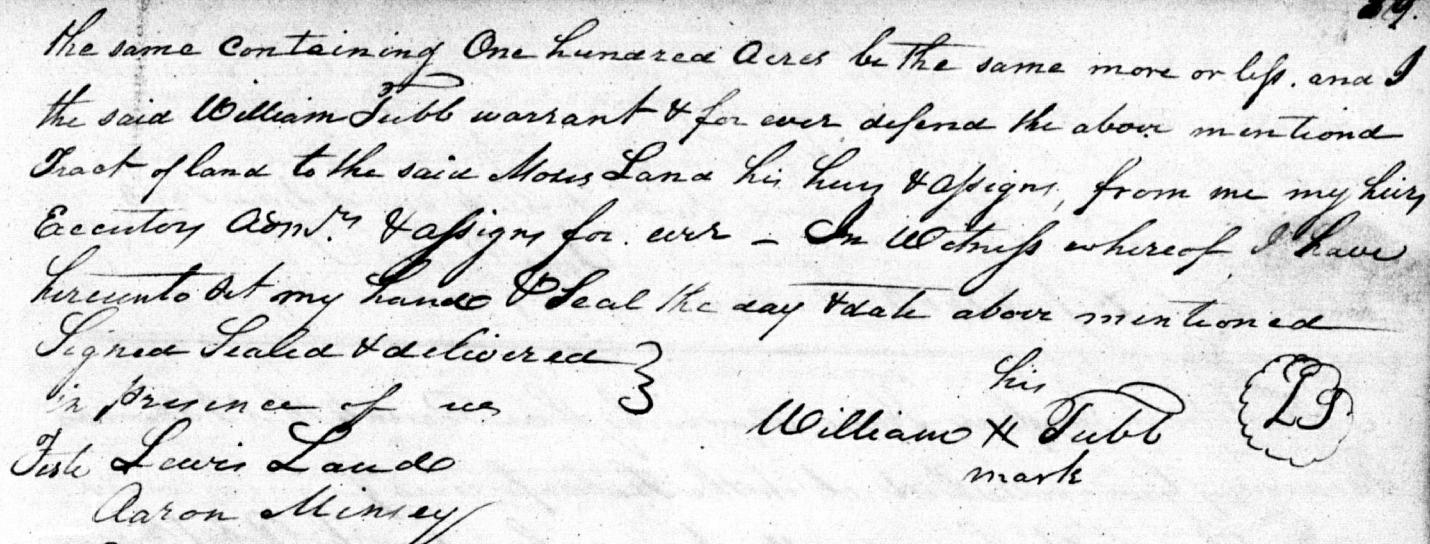 89.
the same containing One hundred Acres be the same more or less. and I
the said William Tubb warrant & for ever defend the above mentiond
Tract of land to the said Moses Land his heirs & assigns, from me my heirs
Executors Adm.rs & assigns for ever – In Witness whereof I have
hereunto set my hand & Seal the day & date above mentioned
Signed Sealed & delivered }
in presence of us
his
William H Tubb LS
mark
Teste Lewis Land
Aaron Minsey